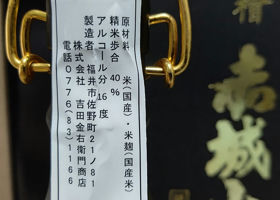 原材料 米(国産)・米麹(国産米)
精米歩合 40%
アルコール分 16度
製造者 福井市佐野町21ノ81
株式会社 吉田金右衛門商店
電話0776(83)1166